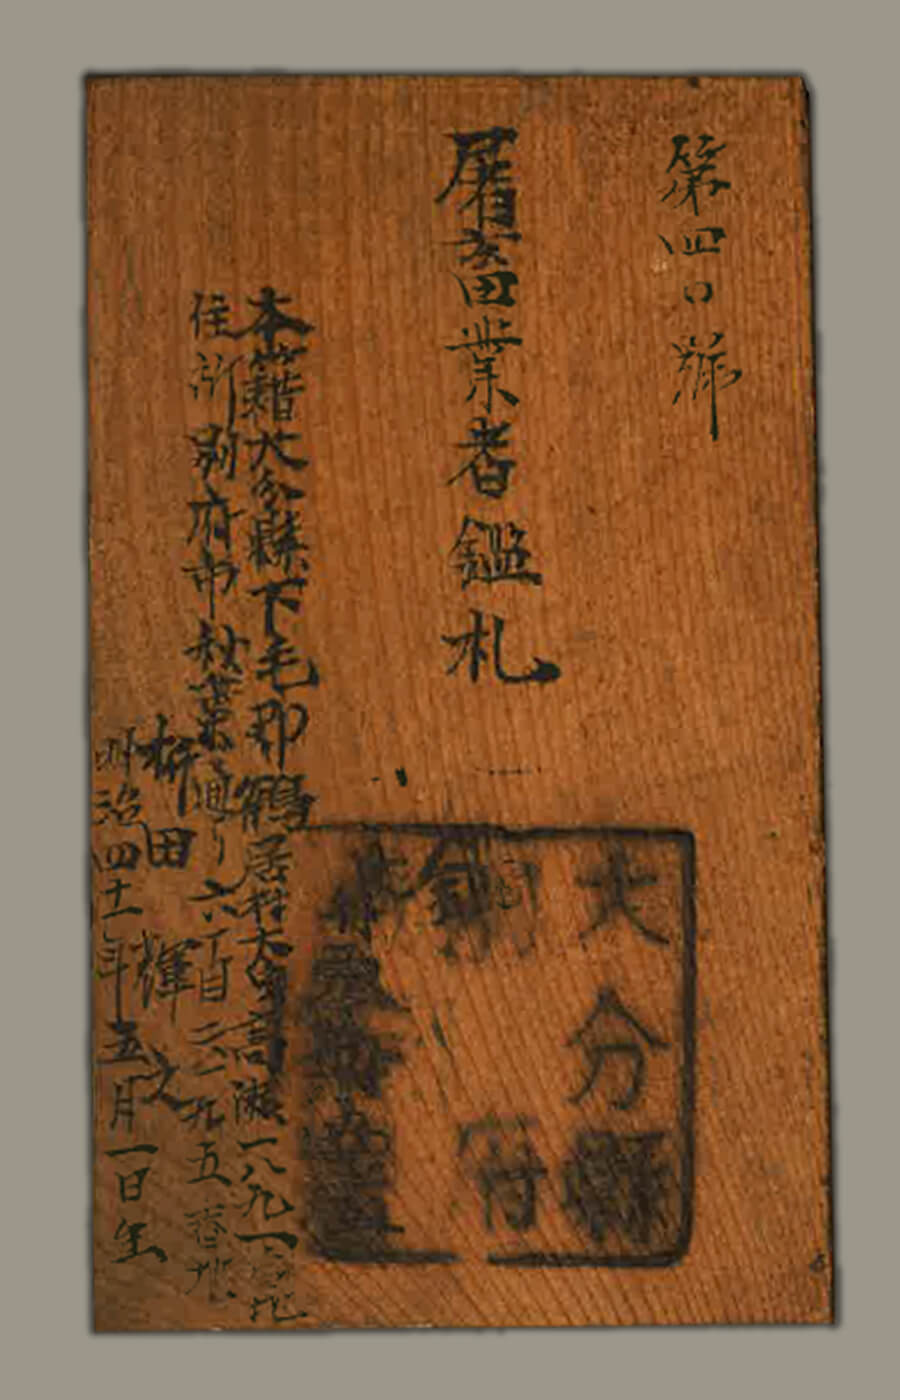 第四〇號
屠畜業者鑑札
本籍大分縣下毛郡鶴居村大字高瀬一八九一番地
住所別府市秋葉通り六丁目二二九五番地
田輝文
明治四十一年五月一日生
大分縣
別府